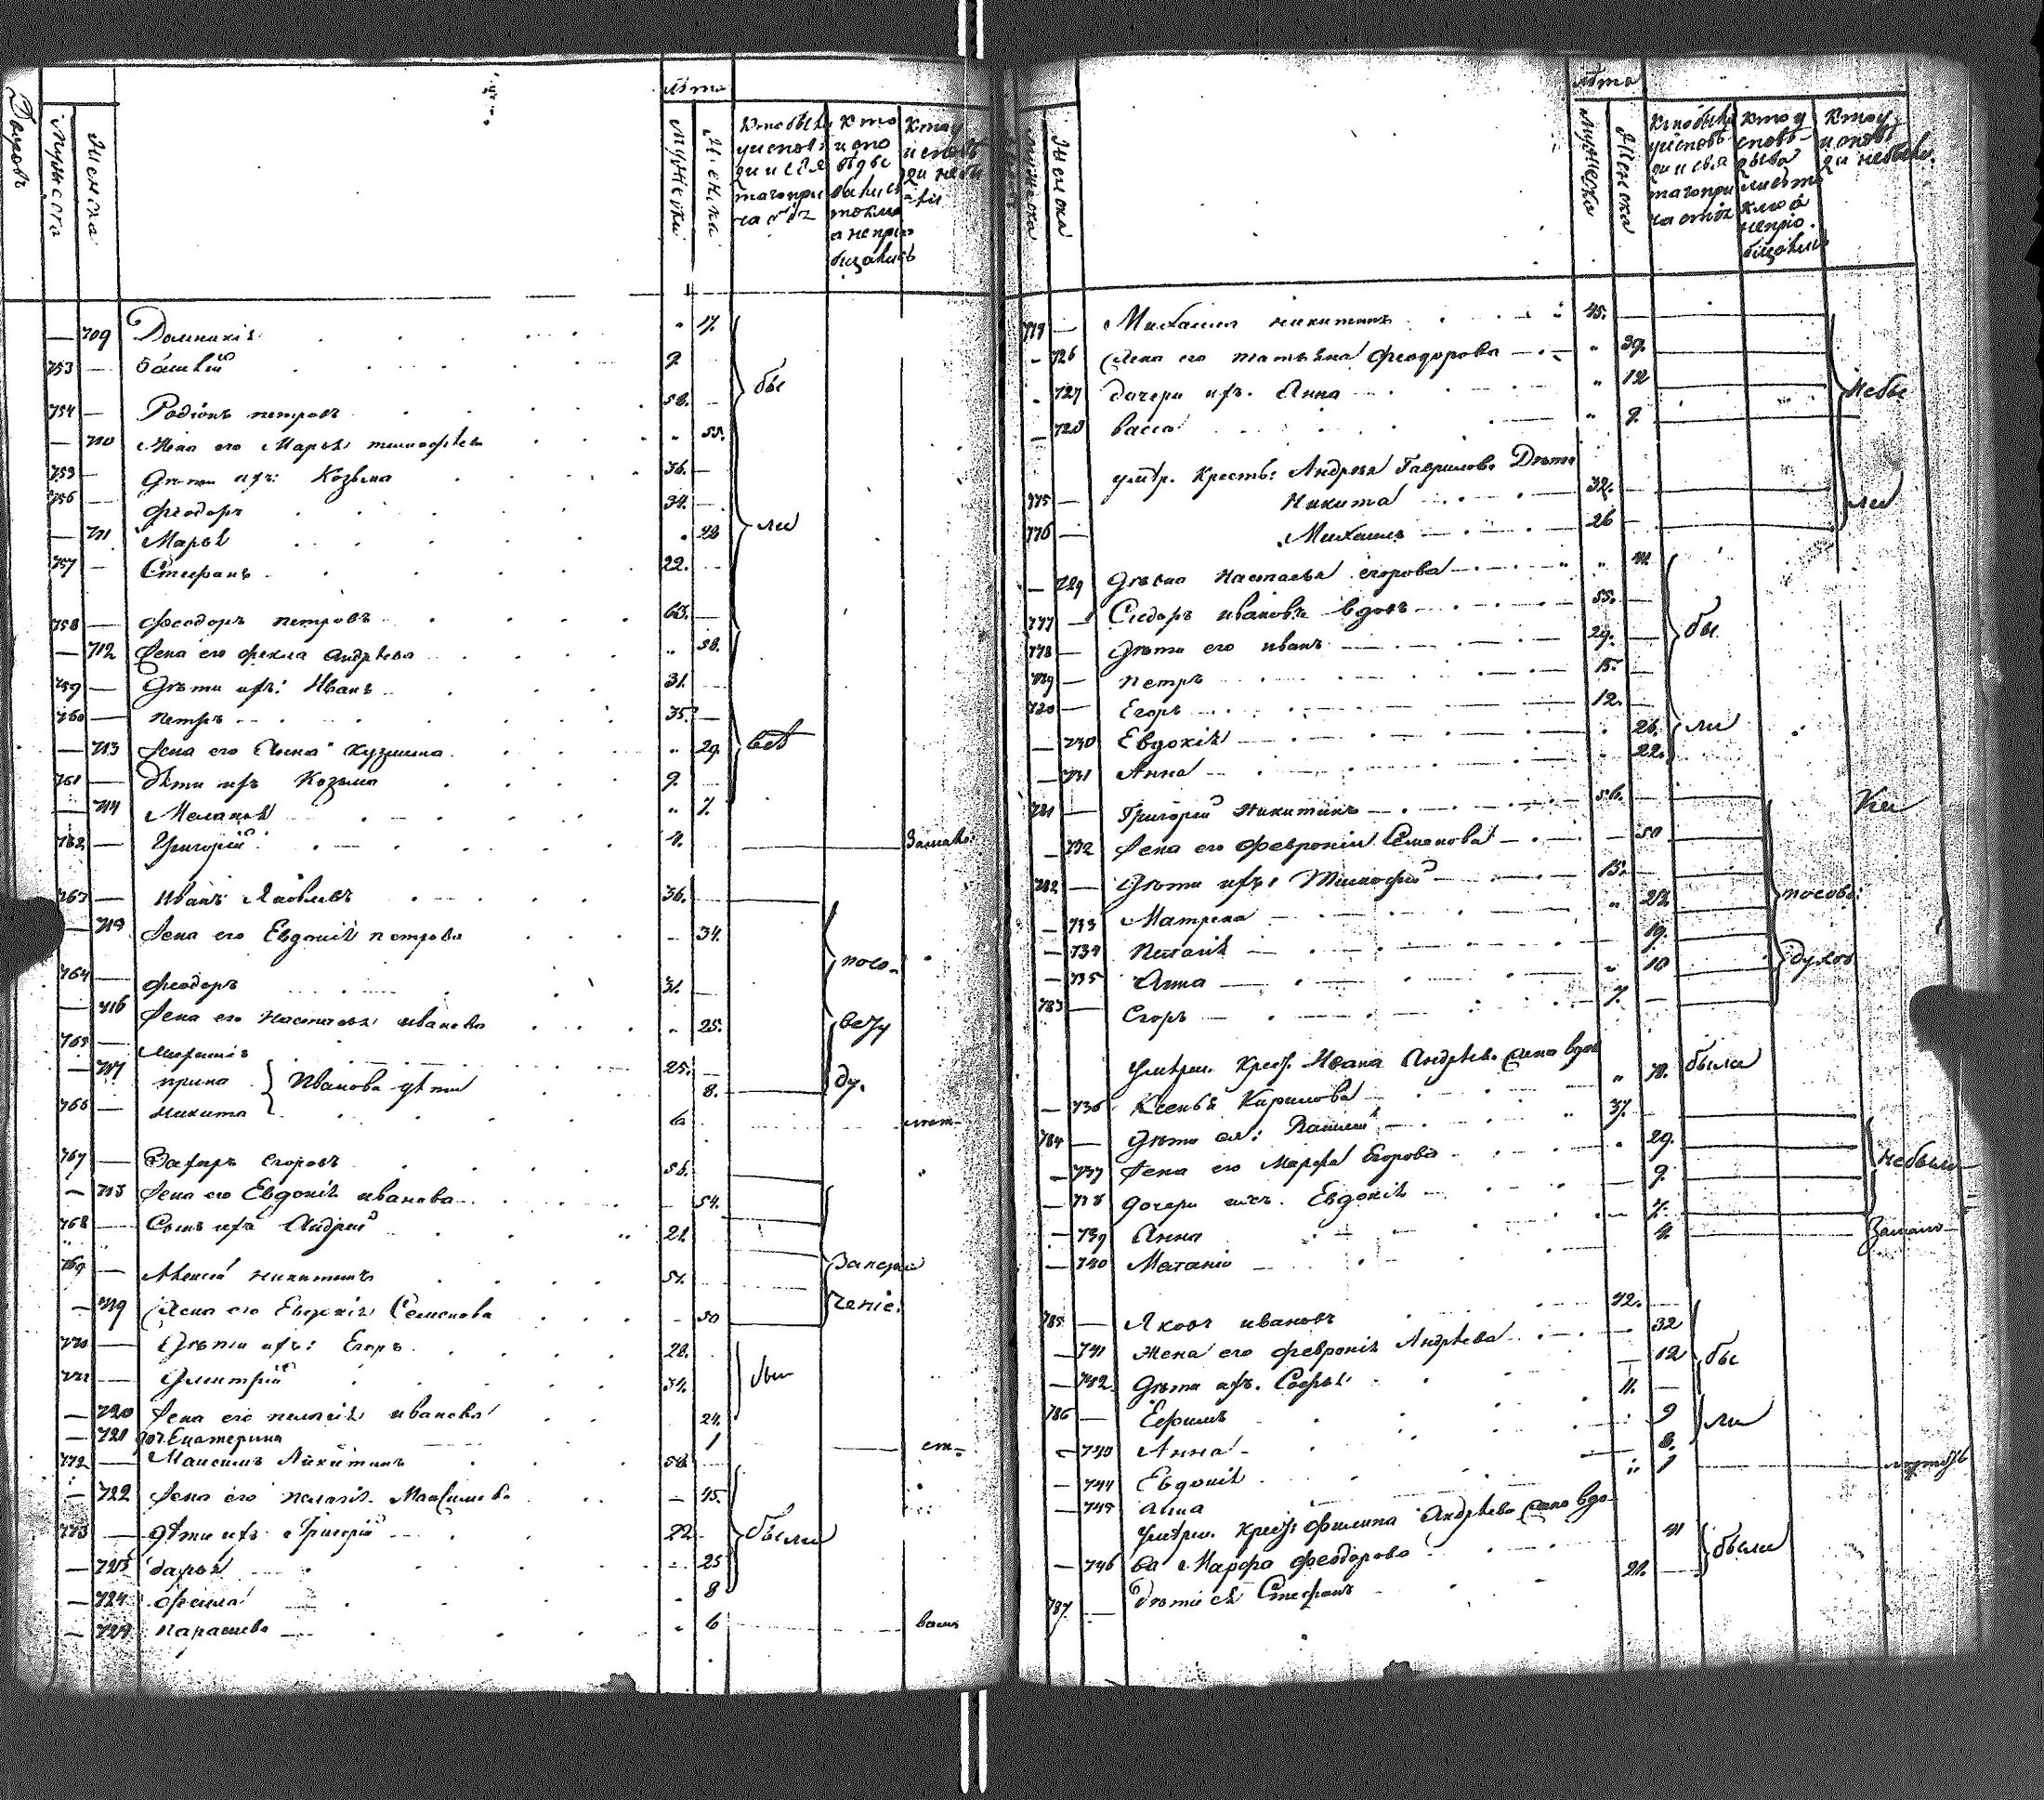 Дворовъ
Мужеска
Женска
Лѣта
Мужеска
Женска
Кто были
у исповѣ
ди и свя
таго при
частія
Кто
испо
вѣды
вались
токмо
а непрі
общались
Кто у
исповѣ
ди небы
ли
— 709 Домникія 17.
753 — Василій 9
бы
754 — Родіонъ петровъ 58.
— 710 Жена его Марья тимофѣева 55.
755 — Дѣти ихъ: Козьма 36.
756 — Феодоръ 34.
— 711 Марья 28
ли
757 — Стефанъ 22.
758 — Феодоръ петровъ 63.
— 712 Жена его фекла Андрѣева 58.
759 — Дѣти ихъ: Иванъ 31.
760 — петръ 35.
— 713 Жена его Анна Кузмина 29.
всѣ
761 — дѣти ихъ Козьма 9.
— 714 Меланья 7.
762 — Григорій 4. Замало:
763 — Иванъ Яковлевъ 36.
— 715 Жена его Евдокія петрова 34.
764 — феодоръ 31.
посо-
— 716 Жена его Настасья иванова 25.
вету
765 — 25.
— 717 ирина } Иванова дѣти 8.
ду.
766 — никита 6
767 — Захаръ Егоровъ 56.
— 718 Жена его Евдокія иванова 54.
768 — Сынъ ихъ Андрей 21
769 — Алексій никитинъ 54.
— 719 Жена его Евдокія Семенова 50
770 — Дѣти ихъ: Егоръ 28.
771 — Дмитрій 34.
— 720 Жена его пелагія иванова 24.
— 721 доч. Екатерина 1
772 — Максимъ Никитинъ 58.
— 722 Жена его пелагія Максимова 45.
773 — дѣти ихъ Григорій 22
были
— 723 дарья 25
— 724 фекла 8
— 725 параскева 6
Мужеска
Женска
Лѣта
Мужеска
Женска
Кто были
у исповѣ
ди и свя
таго при
частія
Кто у
исповѣ
дыва
лись то
кмо а
непріо
бщались
Кто у
исповѣ
ди небыли.
774 — Михаилъ никитинъ 45.
— 726 Жена его татьяна феодорова 39.
— 727 дочери ихъ. Анна 12
небы
— 728 васса 9.
умер. Кресть: Андрея Гаврилова Дѣти
775 — Никита 32.
ли
776 — Михаилъ 26
— 729 Дѣвка Настасья егорова 41.
777 — Сидоръ ивановъ вдовъ 55.
бы
778 — Дѣти его иванъ 29.
779 — петръ 15
780 — Егоръ 12.
— 730 Евдокія 26.
ли
— 731 Анна 22.
781 — Григорій Никитинъ 56.
— 732 Жена его Февронія Семенова 50
782 — Дѣти ихъ: Тимофій 15.
— 733 Матрена 22
посовѣ:
— 734 Пелагія 19.
— 735 Анна 10
783 — Егоръ 7.
умерш. Крест. Ивана Андрѣева Жена вдов
— 736 Ксенья Кирилова 70. была
784 — Дѣти ея: Василій 37.
— 737 Жена его Марфа Егорова 29.
— 738 дочери ихъ. Евдокія 9.
небыли
— 739 Анна 7.
— 740 Меланія 4. Замало
785 — Яковъ ивановъ 42.
— 741 Жена его февронія Андрѣева 32
— 742 Дѣти ихъ. Софья 12
бы
786 — Ефимъ 11.
— 743 Анна 9
ли
— 744 Евдокія 8.
— 745 анна 1
умерш. Крест: Филипа Андрѣева Жена вдо-
— 746 ва Марфа феодорова 41
были
787 — Дѣти ея Стефанъ 21.